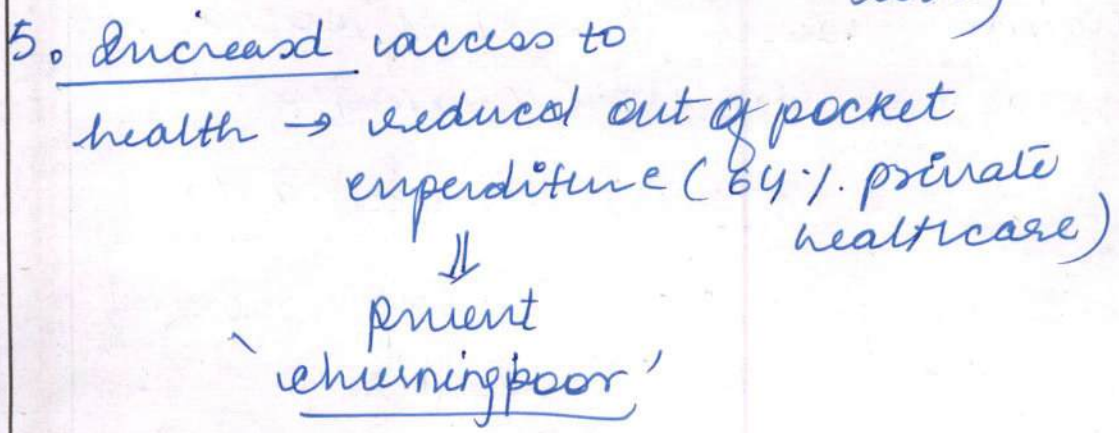 5. Increasd access to
health → reduced out of pocket
expenditure (64%. private
healthcare)
⇓
prevent
'churning poor'